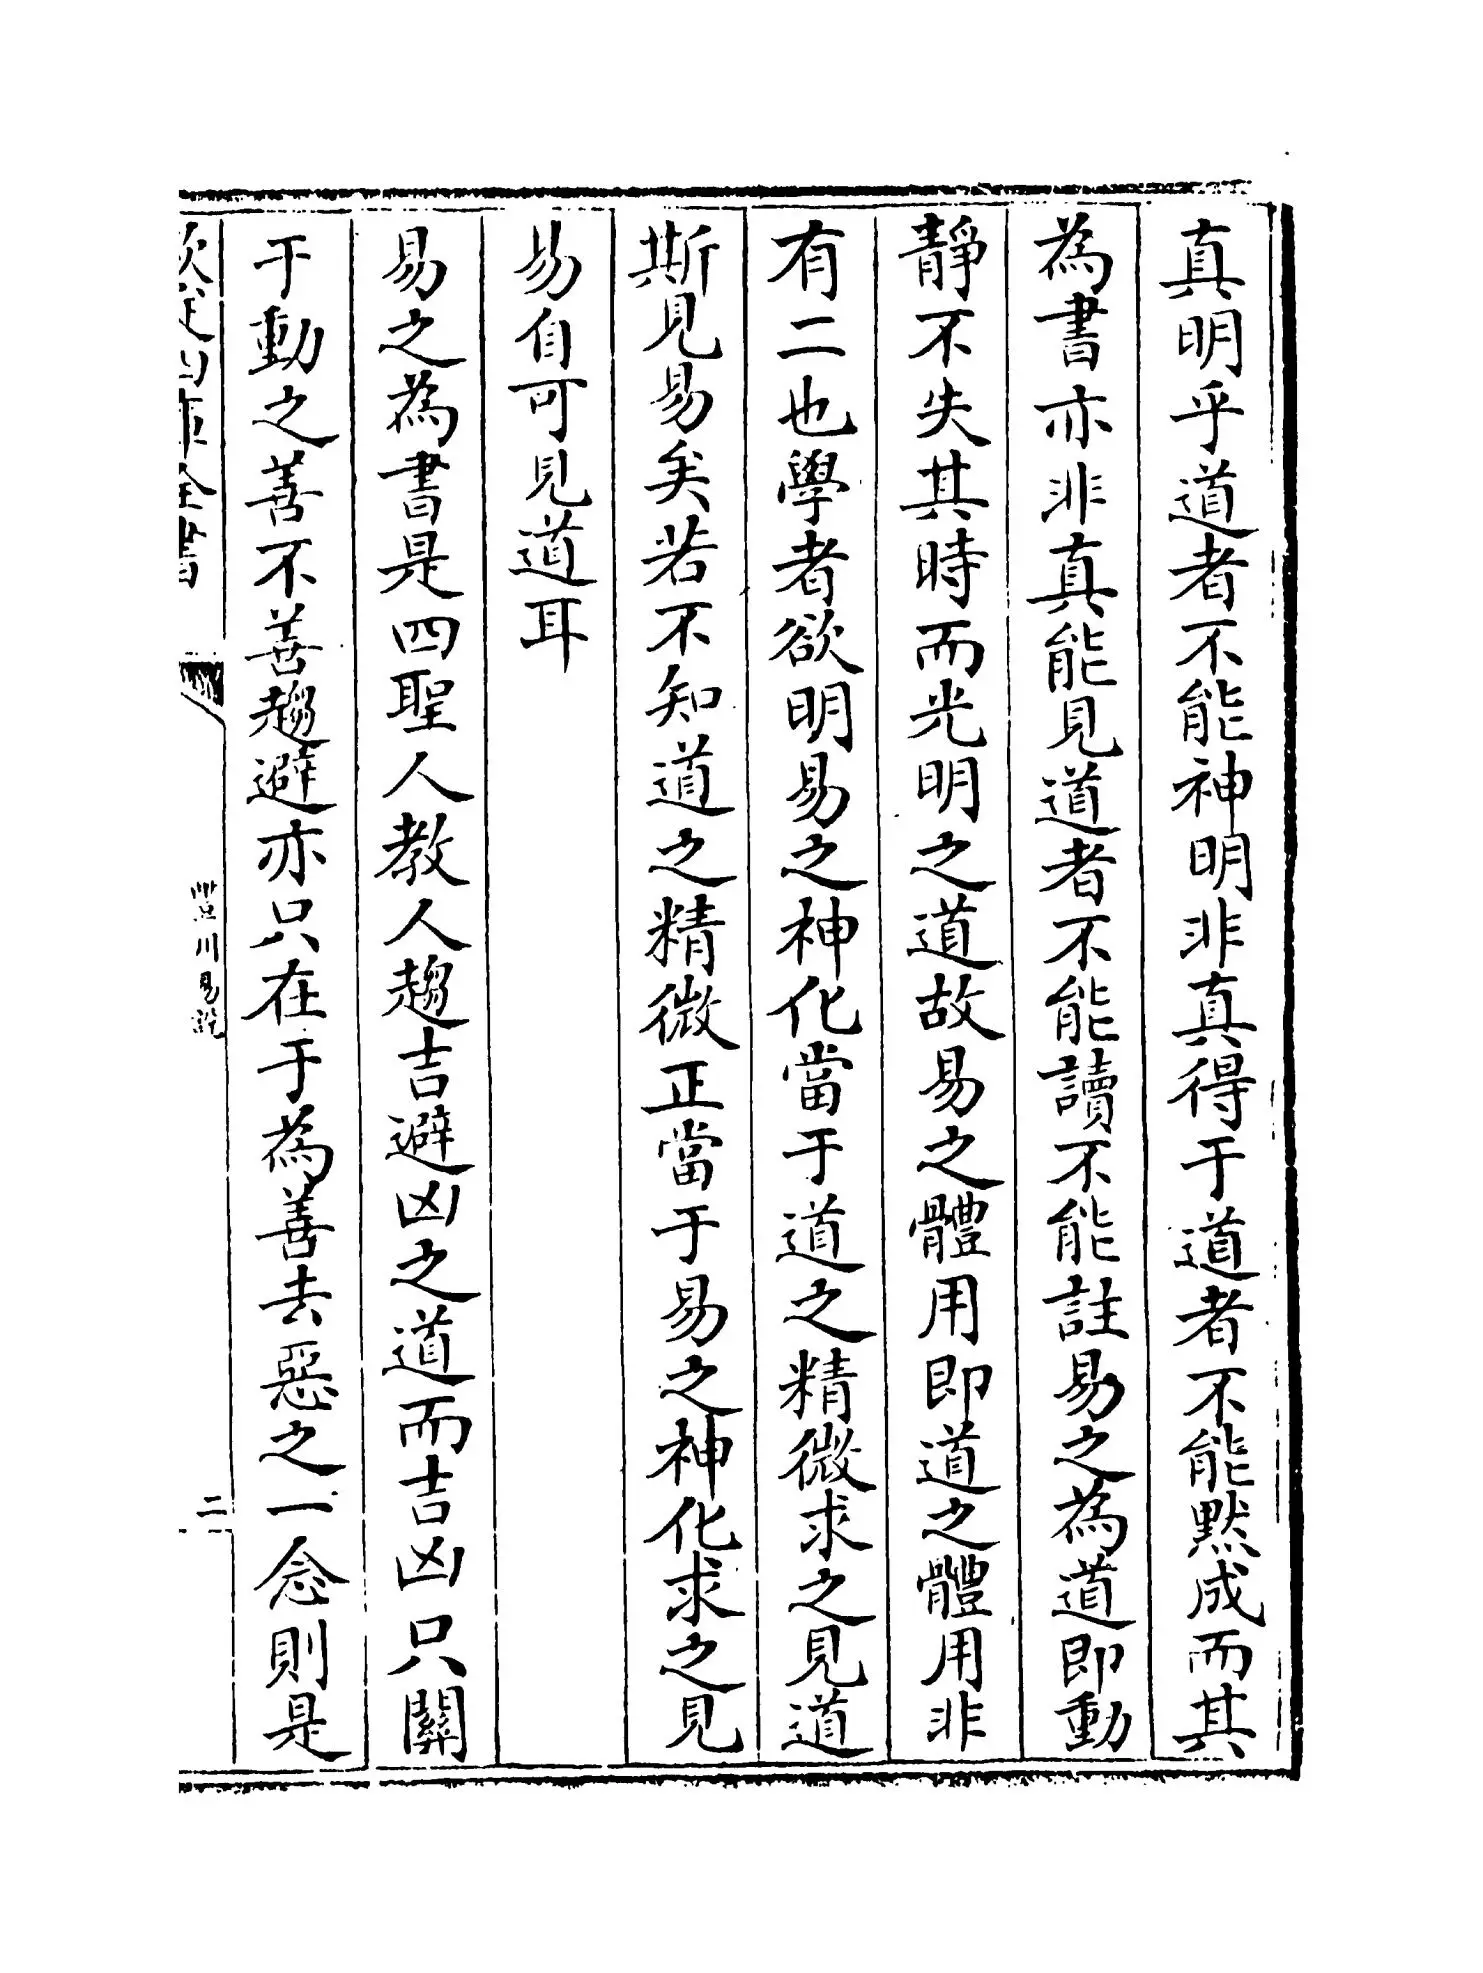 真明乎道者不能神明非真得于道者不能默成而其
為書亦非真能見道者不能讀不能註易之為道即動
靜不失其時而光明之道故易之體用即道之體用非
有二也學者欲明易之神化當于道之精微求之見道
斯見易矣若不知道之精微正當于易之神化求之見
易自可見道耳
易之為書是四聖人教人趨吉避凶之道而吉凶只關
于動之善不善趨避亦只在于為善去惡之一念則是
欽定四庫全書
豐川易說
二